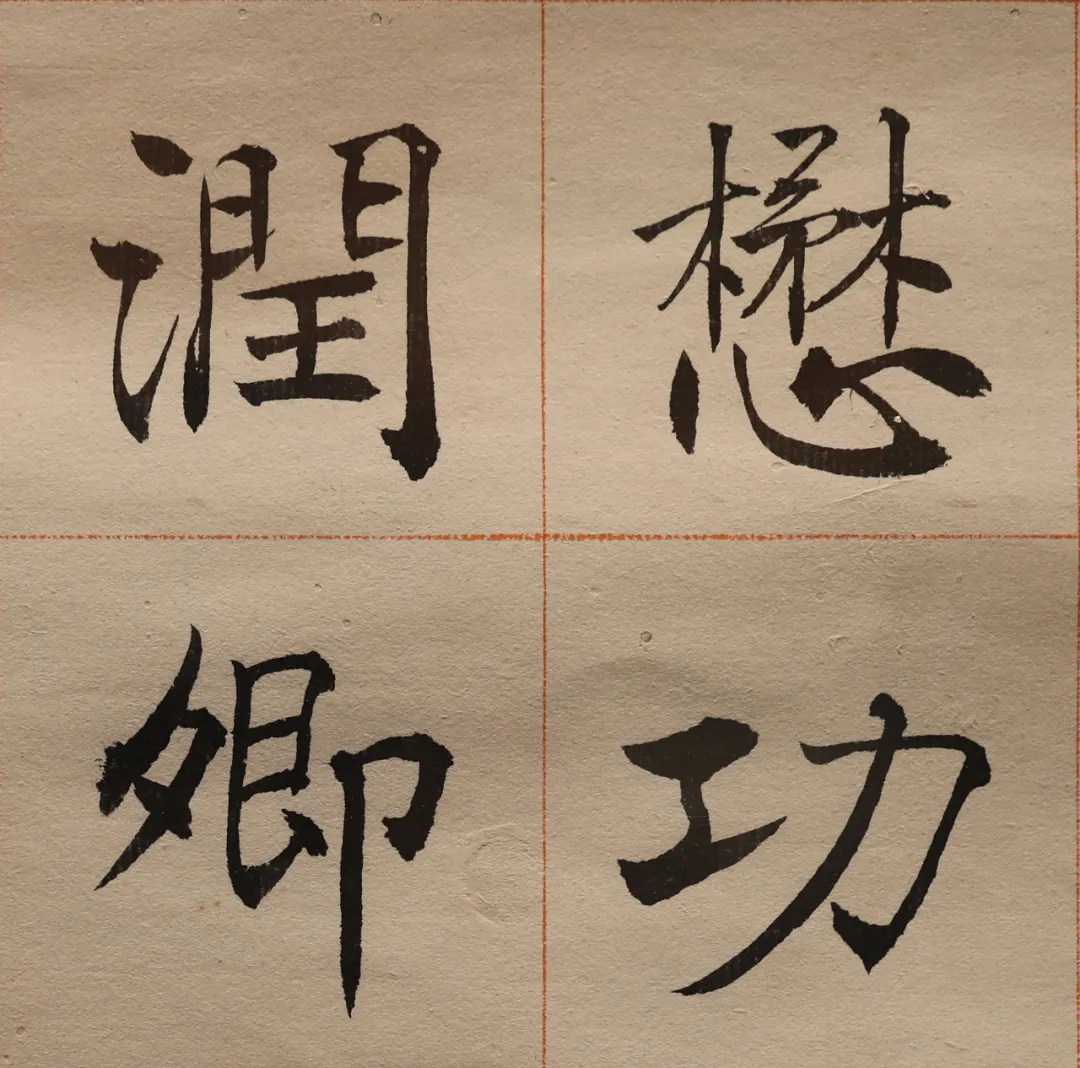 懋功
潤卿